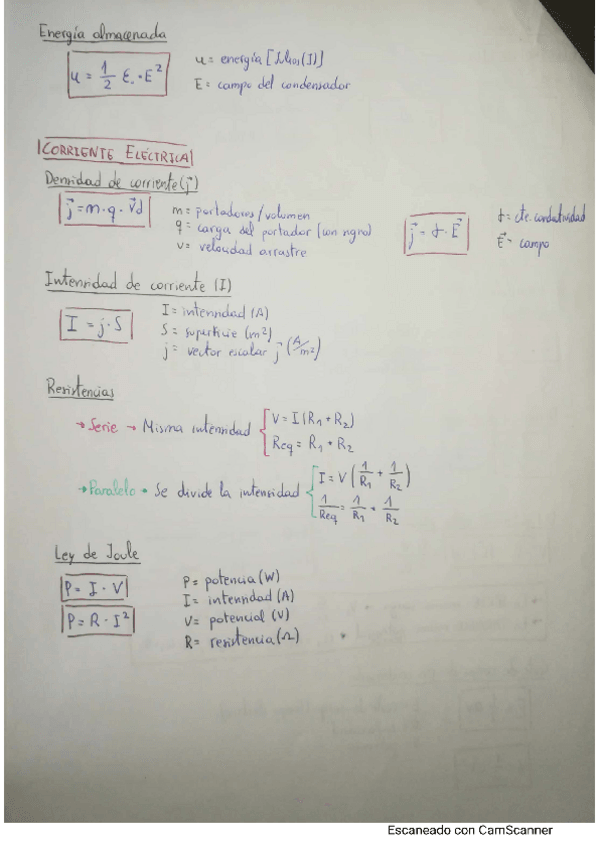 Energía almacenada
u = 1/2 ε₀ · E²
u = energía [Julios (J)]
E = campo del condensador
CORRIENTE ELÉCTRICA
Densidad de corriente (j⃗)
j⃗ = m · q · v⃗d
m = portadores/volumen
q = carga del portador (con signo)
v = velocidad arrastre
j⃗ = σ · E⃗
σ = cte. conductividad
E⃗ = campo
Intensidad de corriente (I)
I = j · S
I = intensidad (A)
S = superficie (m²)
j = vector escalar j⃗ (A/m²)
Resistencias
→ Serie → Misma intensidad
V = I (R₁ + R₂)
Req = R₁ + R₂
→ Paralelo • Se divide la intensidad
I = V (1/R₁ + 1/R₂)
1/Req = 1/R₁ + 1/R₂
Ley de Joule
P = I · V
P = R · I²
P = potencia (W)
I = intensidad (A)
V = potencial (V)
R = resistencia (Ω)
Escaneado con CamScanner